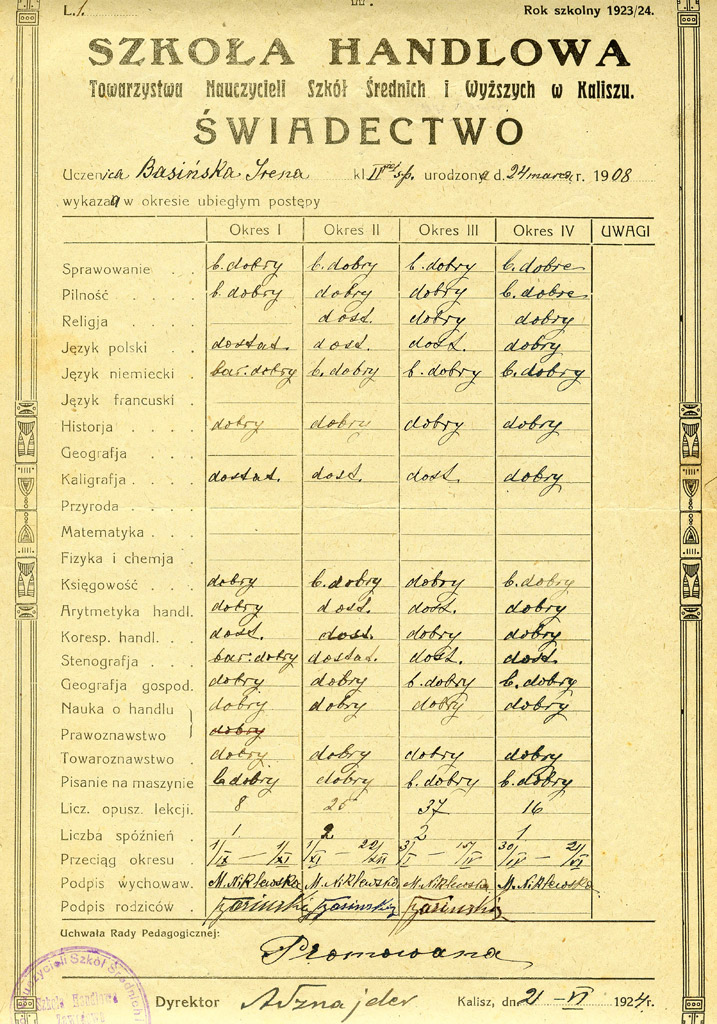 L. 1. Rok szkolny 1923/24.
SZKOŁA HANDLOWA
Towarzystwa Nauczycieli Szkół Średnich i Wyższych w Kaliszu.
ŚWIADECTWO
Uczenica Basińska Irena kl. II sp. urodzona d. 24 marca r. 1908
wykazała w okresie ubiegłym postępy
Okres I Okres II Okres III Okres IV UWAGI
Sprawowanie . . b. dobry b. dobry b. dobry b. dobre
Pilność . . . . b. dobry dobry dobry b. dobre
Religja . . . . dost. dobry dobry
Język polski . . dostat. dost. dost. dobry
Język niemiecki bar. dobry b. dobry b. dobry b. dobry
Język francuski .
Historja . . . dobry dobry dobry dobry
Geografja . . .
Kaligrafja . . . dostat. dost. dost. dobry
Przyroda . . . .
Matematyka . . .
Fizyka i chemja .
Księgowość . . dobry b. dobry dobry b. dobry
Arytmetyka handl. dobry dost. dost. dobry
Koresp. handl. . . dost. dost. dobry dobry
Stenografja . . . bar. dobry dostat. dost. dost.
Geografja gospod. dobry dobry b. dobry b. dobry
Nauka o handlu dobry dobry dobry dobry
Prawoznawstwo dobry
Towaroznawstwo . dobry dobry dobry dobry
Pisanie na maszynie b. dobry dobry b. dobry b. dobry
Licz. opusz. lekcji. 8 25 37 16
Liczba spóźnień . 1 2 2 1
Przeciąg okresu . 1/IX — 1/XI 1/XI — 22/XII 31/I — 15/IV 30/IV — 21/VI
Podpis wychowaw. M. Niklewska M. Niklewska M. Niklewska M. Niklewska
Podpis rodziców .
Uchwała Rady Pedagogicznej:
Promowana
Dyrektor Kalisz, dn. 21 – VI 1924 r.
Nauczycieli Szkół Średnich i
Szkoła Handlowa